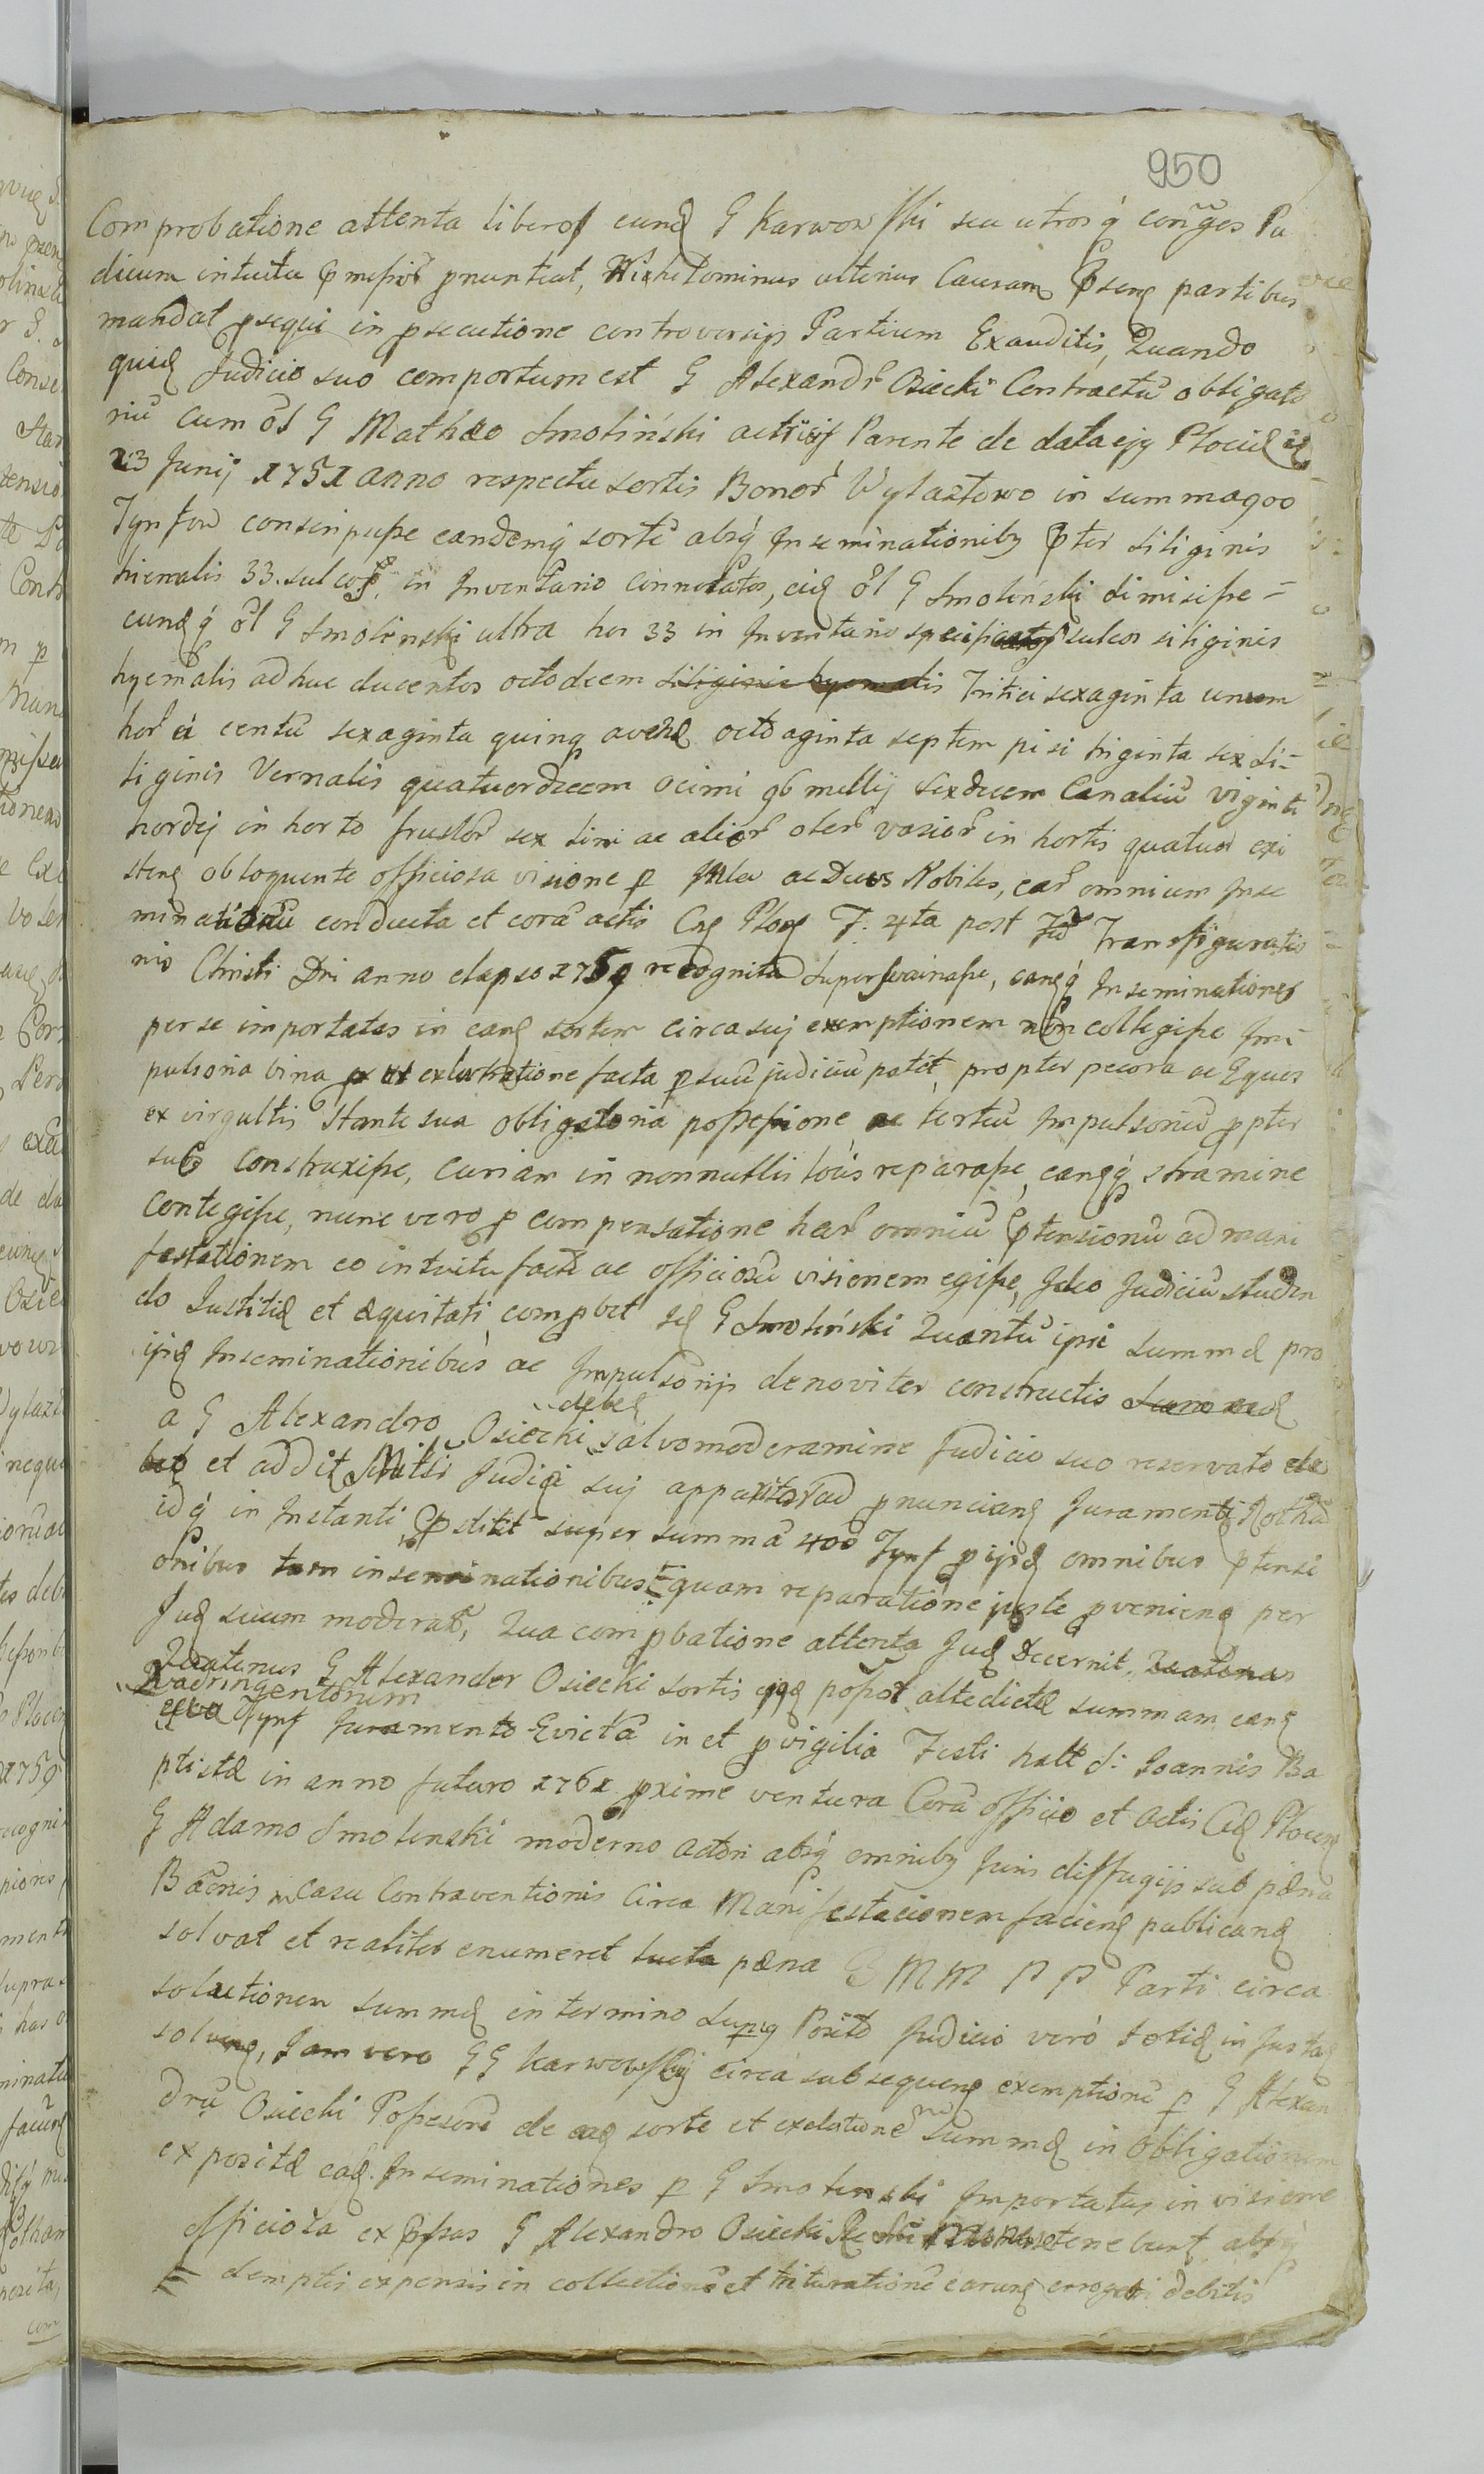 950
Comprobatione attenta liberos eund G Karwowski seu utrosq́ conges Pu
dicum intuitu pmissor pnuntiat, Nihilominus ulterius Causam psens partibus
mandat psequi in psecutione controversijs Partium Exauditis, Quando
quid Judicio suo comportum est G Alexandr Osiecki Contractu obligato
riu cum ol G Mathæo Smoliński actoris Parente de data ejq Plociæ
23 Junij 1751 anno respectu sortis Bonor Wylazłowo in summa 900
Tynfow consripsisse eandemq́ sorte absq́ Inseminationibq pter siliginis
hiemalis 33. sulcos, in Inventario connotatos, eid ol G Smoliński dimisisse =
eundq́ ol G Smolenski ultra hos 33 in Inventario specificatos sulcos siliginis
hyemalis adhuc ducentos octodecem siliginis hyemalis Tritici sexaginta unum
hordei centu sexaginta quinq avenæ octoaginta septem pisi triginta sex si=
liginis Vernalis quatuordecem ocimi 96 millij sexdecem Canaliu viginti
hordej in horto frustor sex lini ac alior oler varior in hortis quatuor exi
stend obloquente officiosa visione p Mlem ac Duos Nobiles, ear omnium Inse
minationu conducta et cora actis Cas Ploc F. 4ta post Fest Transfiguratio
nis Christi Dni anno elapso 1759 recognita superseminasse, easq́ Inseminationes
per se importatas in eand sortem circa suj exemptionem non collegisse Im=
pulsoria bina ex ut exlustratione facta p suu judiciu patet, propter pecora ac Equos
ex virgultis Stante sua obligatoria possessione ac tertiu Impulsoriu ppter
sues construxisse, Curiam in nonnullis locis reparasse, eandq́ stramine
contegisse, nunc vero p compensatione hear omniu ptensionu ad mani
festationem eo intuitu facta ac officiosa visionem egisse, Ideo Judiciu studen
do Justitiæ et æquitati, compbet se G Smoliński Quantu ipsi summæ pro
ijsd Inseminationibus ac Impulsorijs denoviter constructis
debet
a G Alexandro Osiecki salvo moderamine Judicio suo reservato
et addit Mlti Judicij suj apparitor ad pnunciand Juramenti Rotha
idq́ in Instanti pstitit super summa 400 Tynf p ijsd omnibus ptensi
onibus tam inseminationibus quam reparatione juste pveniend per
Jud suum moderat, Qua compbatione attenta Jud Decernit,
Quatenus G Alexander Osiecki sortis possor altedictæ summam eand
Quadringentorum
Tynf Juramento Evicta in et pvigilia Festi natt S: Joannis Ba
ptistæ in anno futuro 1761 pxime ventura Cora officio et Actis Cas Plocen
G Adamo Smolenski moderno actori absq́ omnibq Juris diffugijs sub pæna
Banis in casu Contraventionis Circa Manifestacionem faciend publicand
solvat et realiter enumeret lucta pæna 3 M M P P Parti circa
solutionem summæ in termino supq Posito Judicio verò totid in Instan
solvend, Jam vero GG Karwowskij circa subsequend exemptione p G Alexan
dru Osiecki Possesore de ead sorte et exclutione summæ in Obligationem
expositæ ead. Inseminationes p G Smolenski Importatas in visione
officiosa expssas G Alexandro Osiecki tenebunt absq́
demptis expensis in collectione et trituratione earund erogatis debitis